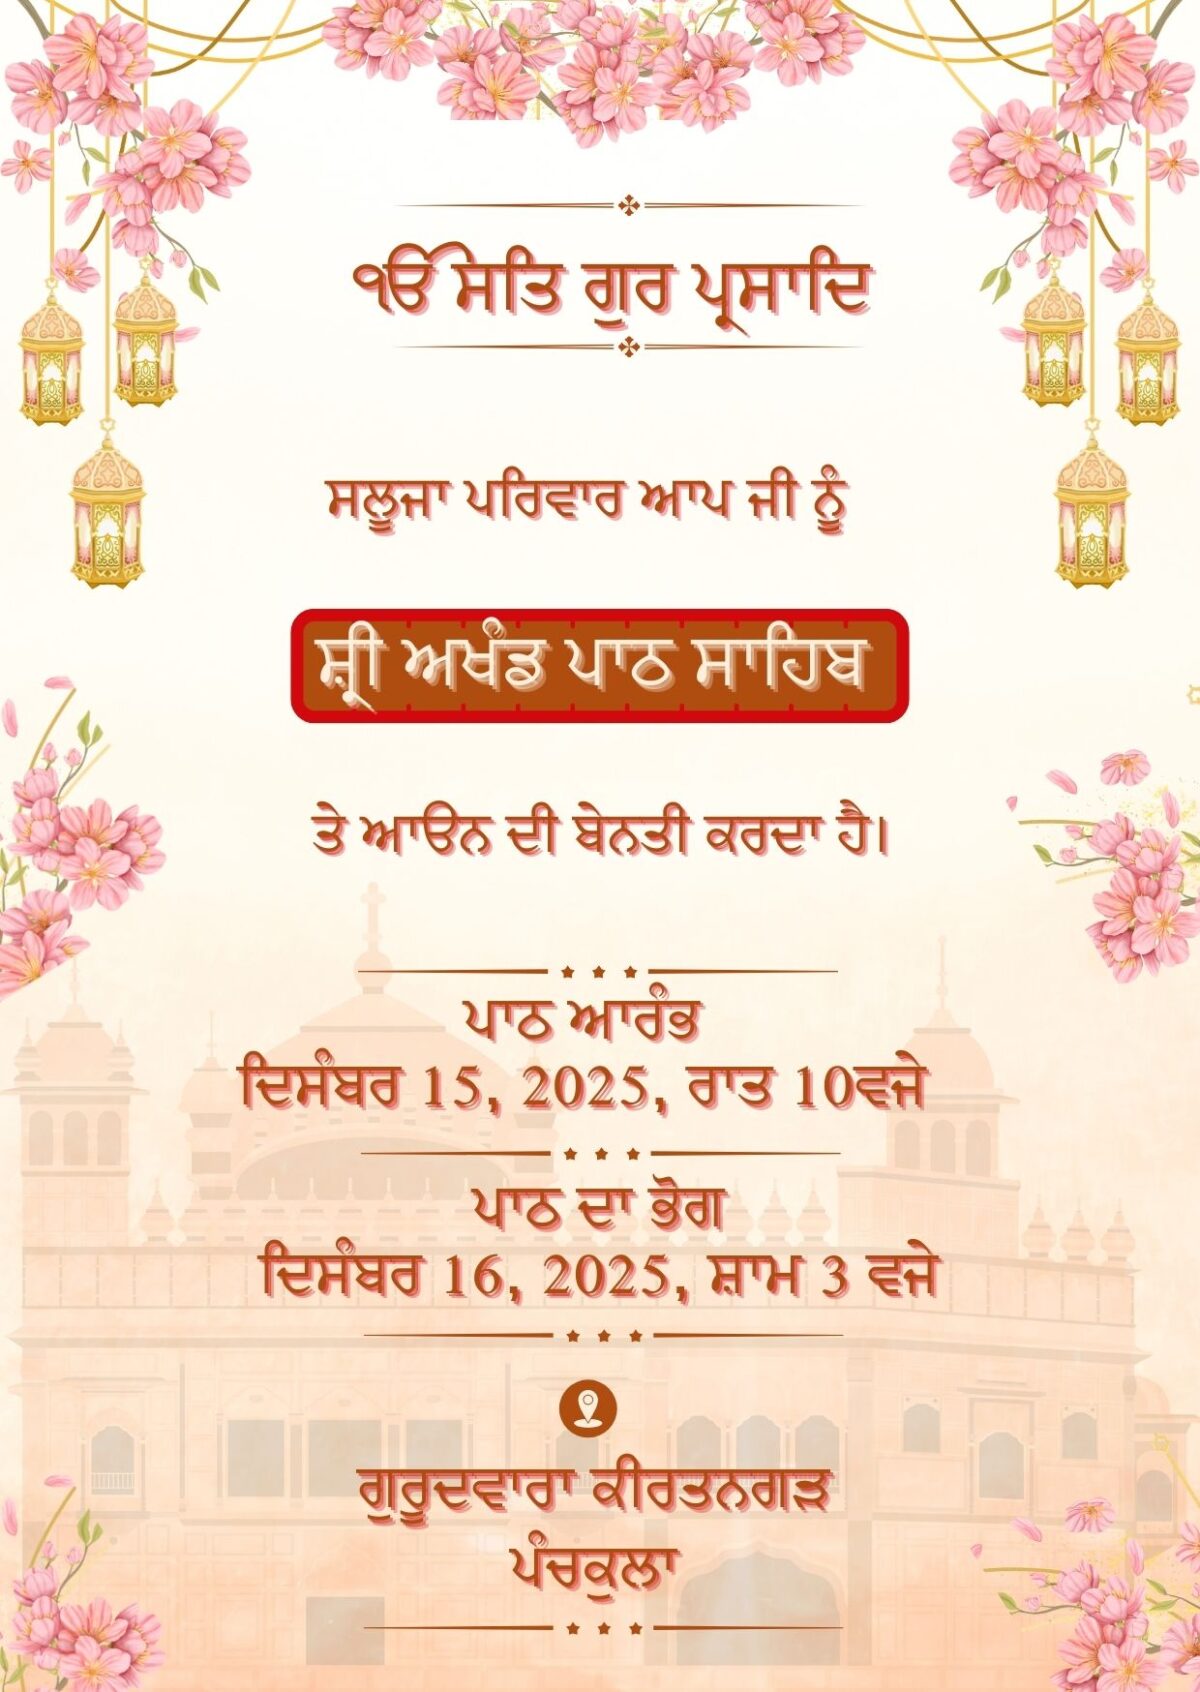 ੴ ਸਤਿ ਗੁਰ ਪ੍ਰਸਾਦਿ
ਸਲੂਜਾ ਪਰਿਵਾਰ ਆਪ ਜੀ ਨੂੰ
ਸ਼੍ਰੀ ਅਖੰਡ ਪਾਠ ਸਾਹਿਬ
ਤੇ ਆਉਨ ਦੀ ਬੇਨਤੀ ਕਰਦਾ ਹੈ।
ਪਾਠ ਆਰੰਭ
ਦਿਸੰਬਰ 15, 2025, ਰਾਤ 10ਵਜੇ
ਪਾਠ ਦਾ ਭੋਗ
ਦਿਸੰਬਰ 16, 2025, ਸ਼ਾਮ 3 ਵਜੇ
ਗੁਰੂਦਵਾਰਾ ਕੀਰਤਨਗੜ
ਪੰਚਕੁਲਾ